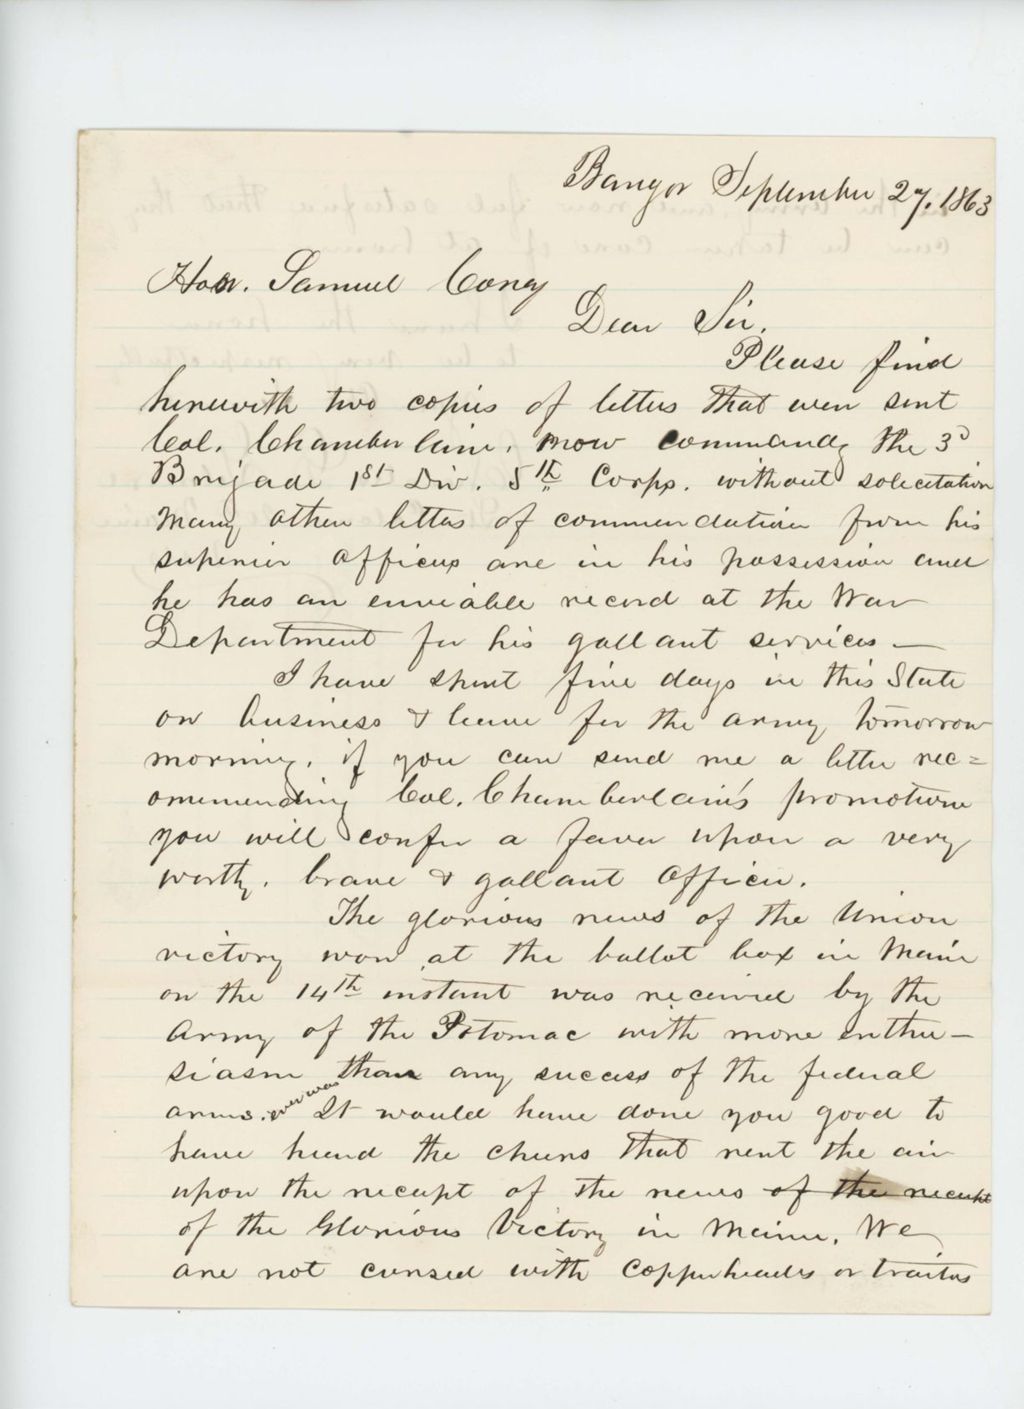 Bangor September 27, 1863
Hon. Samuel Cony
Dear Sir.
Please find
herewith two copies of letters that were sent
Col. Chamberlain, now commandg the 3d
Brigade 1st Div. 5th Corps. without solicitation
Many other letters of commendation from his
superior officers are in his possession and
he has an enviable record at the War
Department for his gallant services —
I have spent five days in this State
on business & leave for the army tomorrow
morning, if you can send me a letter rec=
ommending Col. Chamberlain's promotion
you will confer a favor upon a very
worthy, brave & gallant officer.
The glorious news of the Union
victory won at the ballot box in Maine
on the 14th instant was received by the
Army of the Potomac with more enthu—
siasm than any success of the federal
arms. ever was It would have done you good to
have heard the cheers that rent the air
upon the receipt of the news of the receipt
of the Glorious Victory in Maine. We
are not cursed with Copperheads or traitors